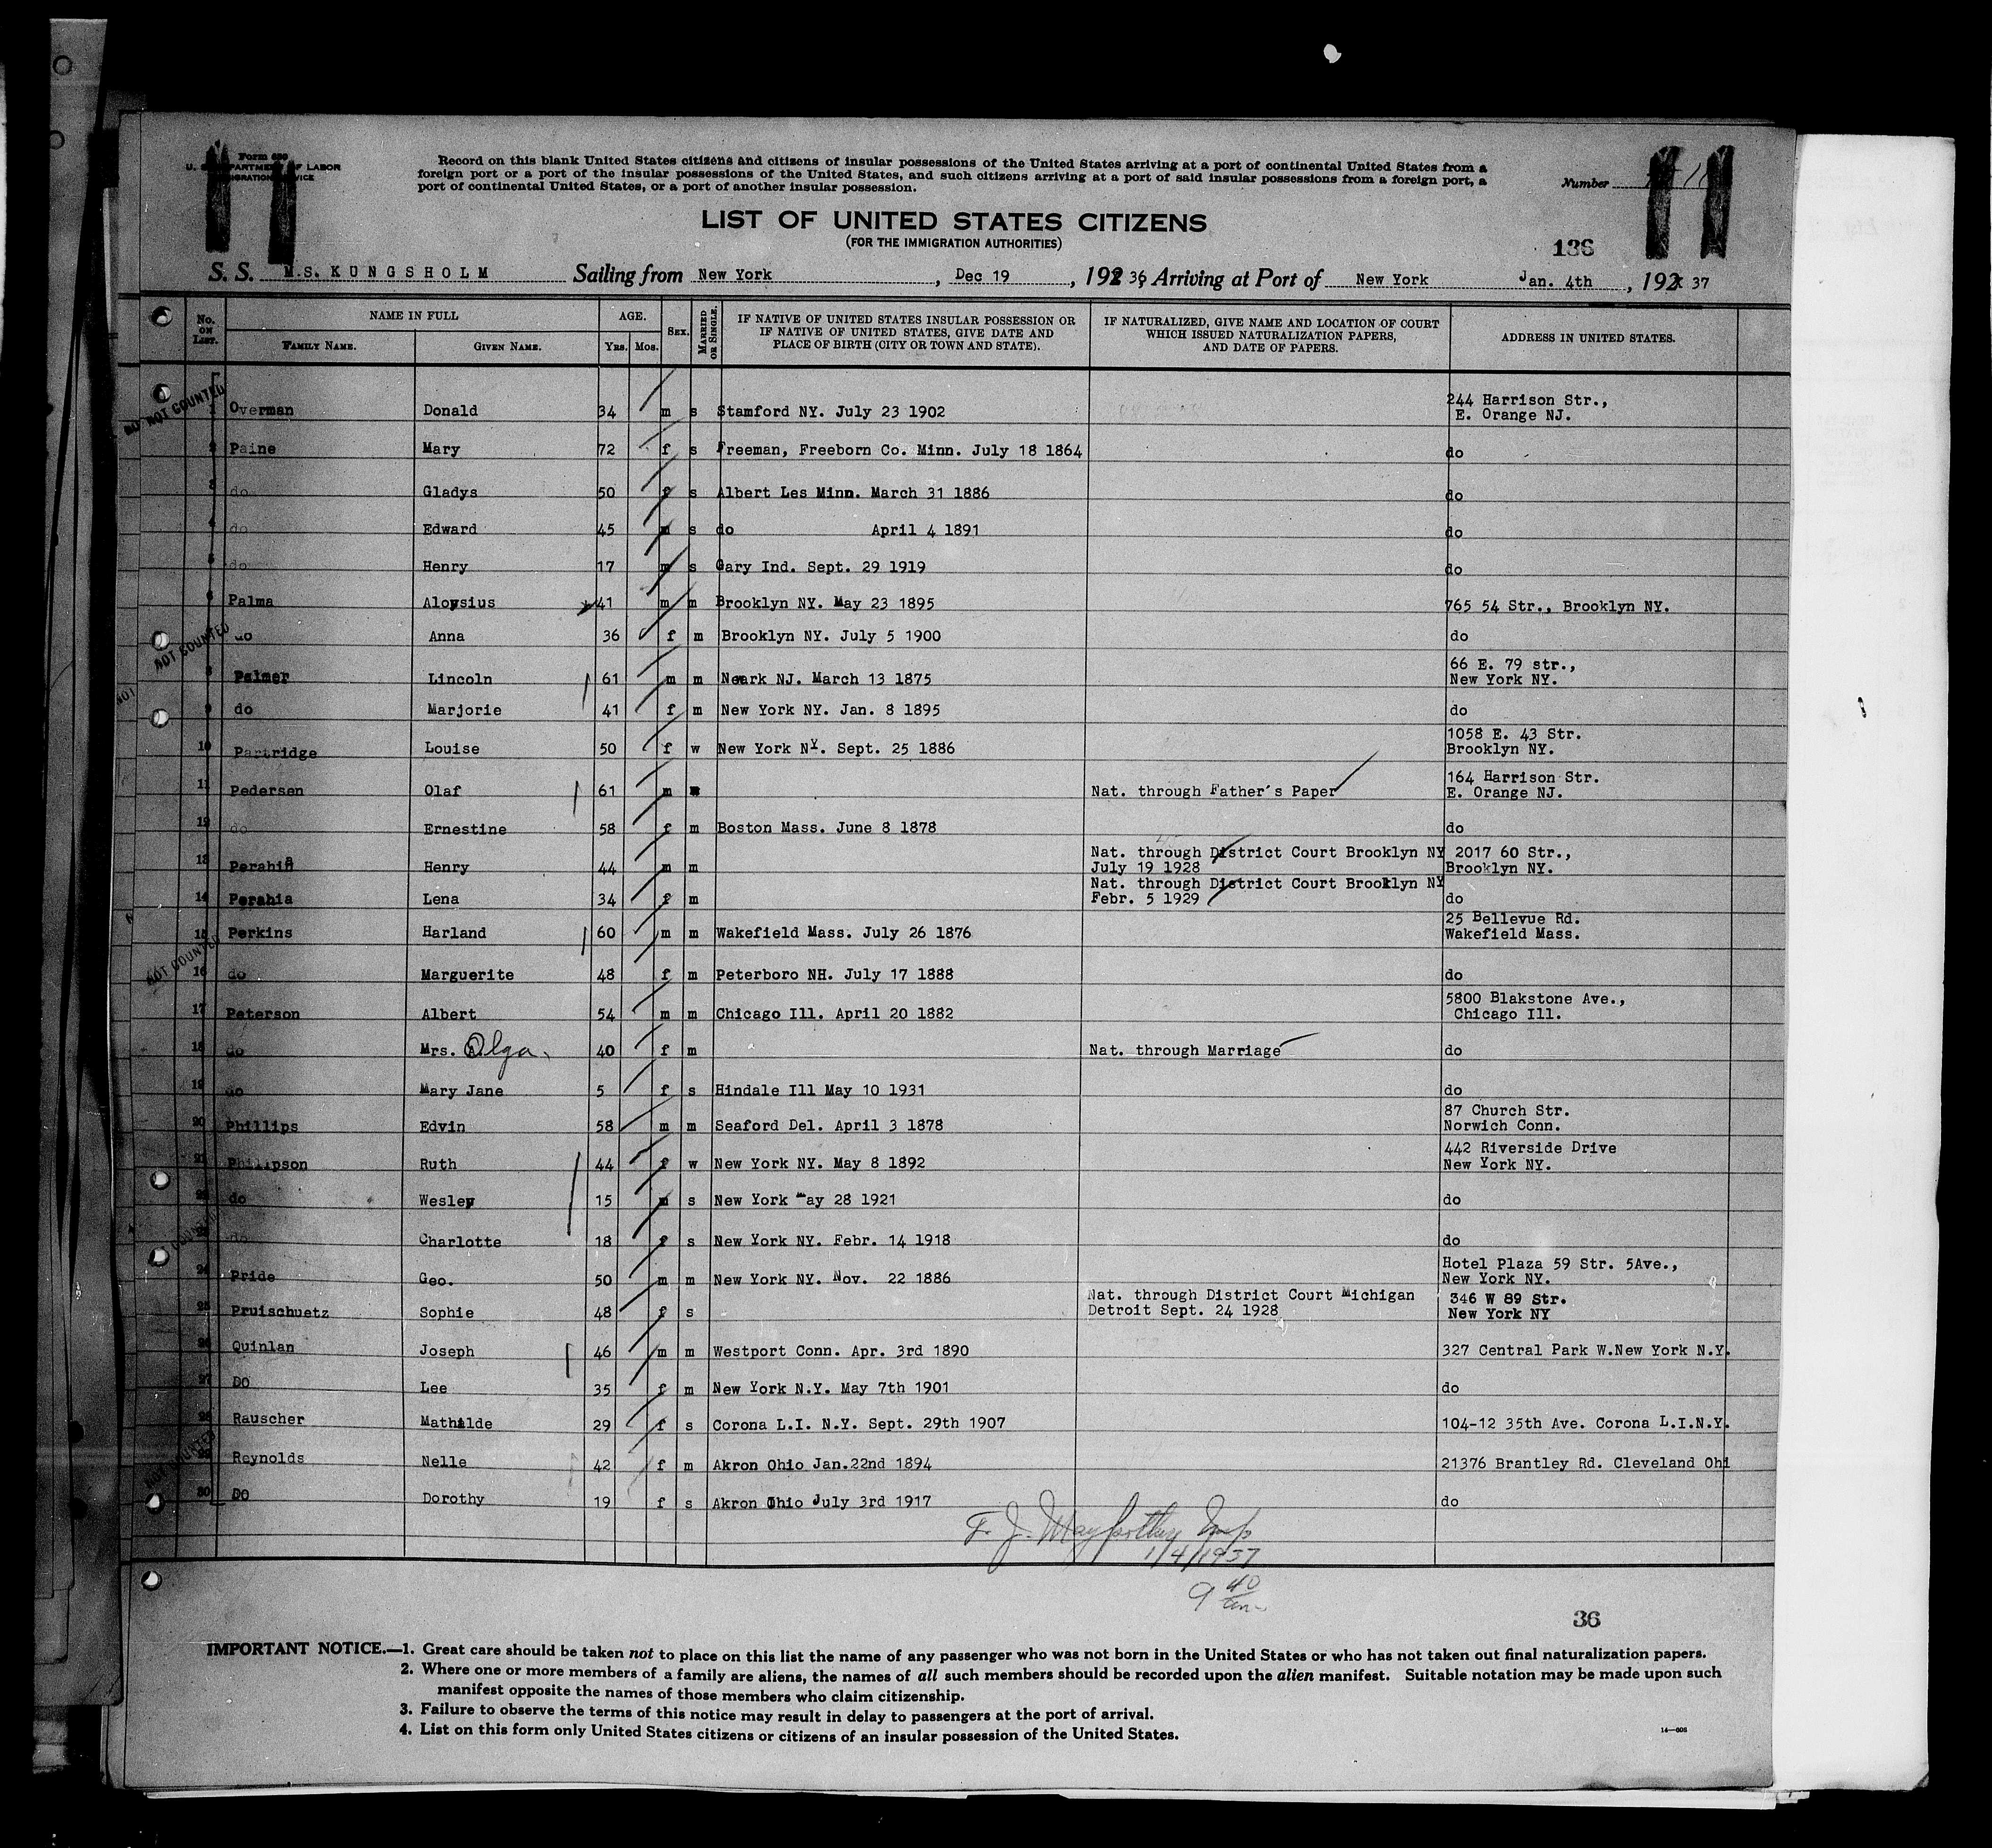 Form 630
U. S. DEPARTMENT OF LABOR
IMMIGRATION SERVICE
Record on this blank United States citizens and citizens of insular possessions of the United States arriving at a port of continental United States from a
foreign port or a port of the insular possessions of the United States, and such citizens arriving at a port of said insular possessions from a foreign port, a
port of continental United States, or a port of another insular possession.
Number
LIST OF UNITED STATES CITIZENS
(FOR THE IMMIGRATION AUTHORITIES)
136
S. S. M.S. KUNGSHOLM Sailing from New York, Dec 19, 192 36, Arriving at Port of New York Jan. 4th, 192 37
No. ON LIST. NAME IN FULL AGE. SEX. MARRIED OR SINGLE. IF NATIVE OF UNITED STATES INSULAR POSSESSION OR IF NATIVE OF UNITED STATES, GIVE DATE AND PLACE OF BIRTH (CITY OR TOWN AND STATE). IF NATURALIZED, GIVE NAME AND LOCATION OF COURT WHICH ISSUED NATURALIZATION PAPERS, AND DATE OF PAPERS. ADDRESS IN UNITED STATES.
FAMILY NAME. GIVEN NAME. YRS. MOS.
NOT COUNTED
1 Overman Donald 34 m s Stamford NY. July 23 1902 244 Harrison Str., E. Orange NJ.
2 Paine Mary 72 f s Freeman, Freeborn Co. Minn. July 18 1864 do
3 do Gladys 50 f s Albert Les Minn. March 31 1886 do
4 do Edward 45 m s do April 4 1891 do
5 do Henry 17 m s Gary Ind. Sept. 29 1919 do
6 Palma Aloysius 41 m m Brooklyn NY. May 23 1895 765 54 Str., Brooklyn NY.
NOT COUNTED
do Anna 36 f m Brooklyn NY. July 5 1900 do
8 Palmer Lincoln 61 m m Newark NJ. March 13 1875 66 E. 79 str., New York NY.
9 do Marjorie 41 f m New York NY. Jan. 8 1895 do
10 Partridge Louise 50 f w New York NY. Sept. 25 1886 1058 E. 43 Str. Brooklyn NY.
11 Pedersen Olaf 61 m Nat. through Father's Paper 164 Harrison Str. E. Orange NJ.
12 do Ernestine 58 f m Boston Mass. June 8 1878 do
13 Perahia Henry 44 m m Nat. through District Court Brooklyn NY July 19 1928 2017 60 Str., Brooklyn NY.
14 Perahia Lena 34 f m Nat. through District Court Brooklyn NY Febr. 5 1929 do
15 Perkins Harland 60 m m Wakefield Mass. July 26 1876 25 Bellevue Rd. Wakefield Mass.
NOT COUNTED
16 do Marguerite 48 f m Peterboro NH. July 17 1888 do
17 Peterson Albert 54 m m Chicago Ill. April 20 1882 5800 Blakstone Ave., Chicago Ill.
18 do Mrs. Olga 40 f m Nat. through Marriage do
19 do Mary Jane 5 f s Hindale Ill May 10 1931 do
20 Phillips Edvin 58 m m Seaford Del. April 3 1878 87 Church Str. Norwich Conn.
21 Philipson Ruth 44 f w New York NY. May 8 1892 442 Riverside Drive New York NY.
22 do Wesley 15 m s New York May 28 1921 do
23 do Charlotte 18 f s New York NY. Febr. 14 1918 do
24 Pride Geo. 50 m m New York NY. Nov. 22 1886 Hotel Plaza 59 Str. 5Ave., New York NY.
25 Pruischuetz Sophie 48 f s Nat. through District Court Michigan Detroit Sept. 24 1928 346 W 89 Str. New York NY
26 Quinlan Joseph 46 m m Westport Conn. Apr. 3rd 1890 327 Central Park W.New York N.Y.
27 DO Lee 35 f m New York N.Y. May 7th 1901 do
28 Rauscher Mathilde 29 f s Corona L.I. N.Y. Sept. 29th 1907 104-12 35th Ave. Corona L.I.N.Y.
29 Reynolds Nelle 42 f m Akron Ohio Jan.22nd 1894 21376 Brantley Rd. Cleveland Ohi
30 DO Dorothy 19 f s Akron Ohio July 3rd 1917 do
F. J. Mayforthy Insp
1/4/1937
9 40
36
IMPORTANT NOTICE.—1. Great care should be taken not to place on this list the name of any passenger who was not born in the United States or who has not taken out final naturalization papers.
2. Where one or more members of a family are aliens, the names of all such members should be recorded upon the alien manifest. Suitable notation may be made upon such
manifest opposite the names of those members who claim citizenship.
3. Failure to observe the terms of this notice may result in delay to passengers at the port of arrival.
4. List on this form only United States citizens or citizens of an insular possession of the United States.